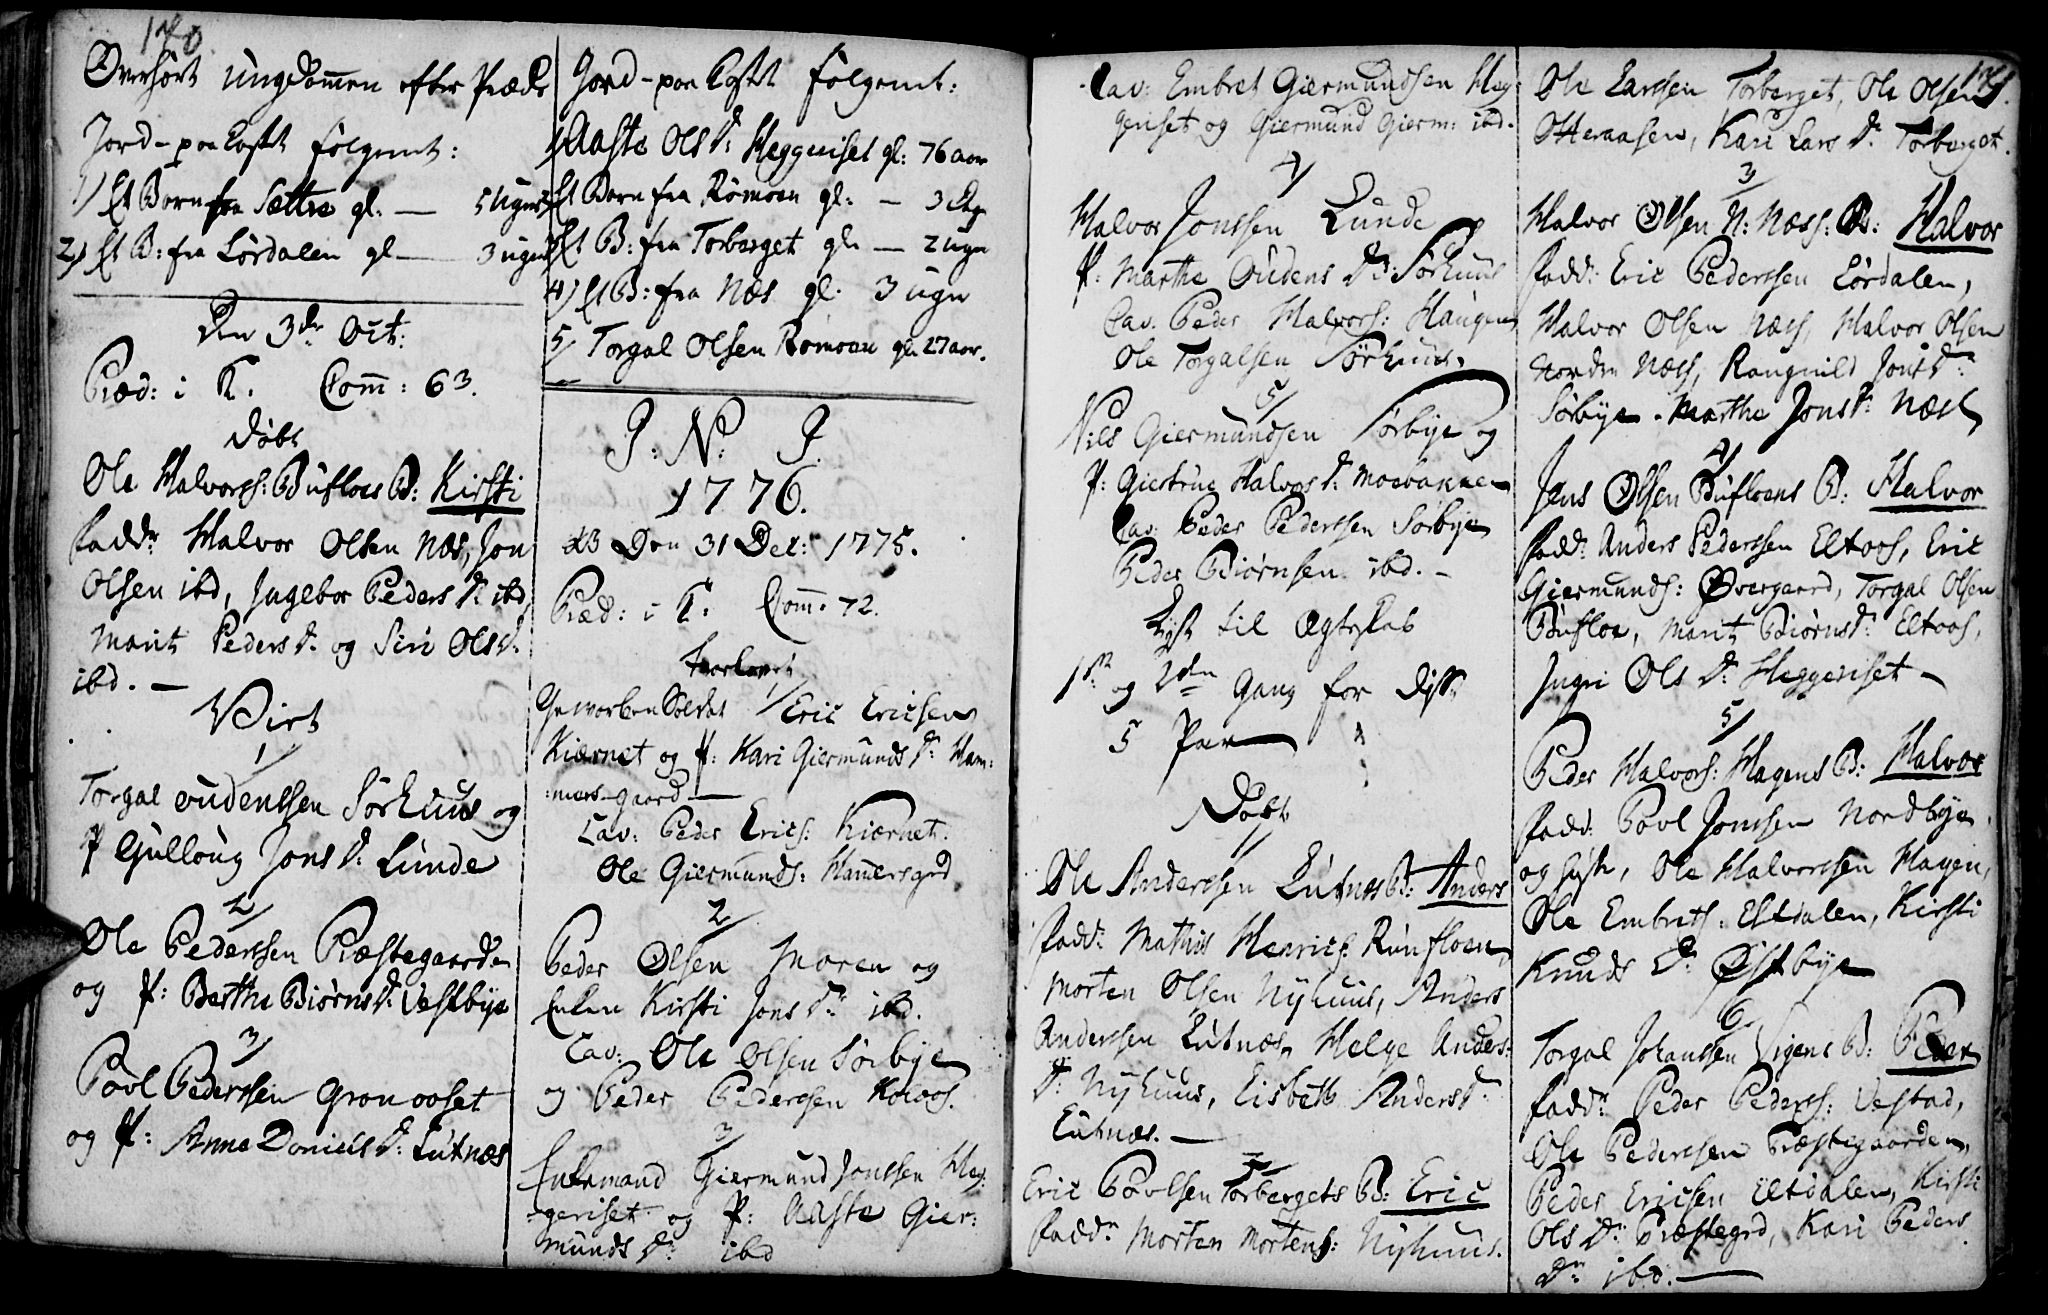 170.
Øverhørt ungdommen efter Præd:
Jord-paa Kastet følgent:
1) Et Barn fra Sættre gl. — 5 Uger
2) Et B: fra Lørdalen gl — 3 uger
Den 3die Oct:
Præd: i K. Comm: 63.
Døbt
Ole Halvorss: Bufloes B: Kirsti
Fadd: Halvor Olsen Næs, Jon
Olsen ibd, Ingebor Peders D: ibd,
Marit Peders D. og Siri Ols D.
ibd. —
Viet
1/
Torgal oudenssen Sørhuus og
P Gulloug Jons D: Lunde
2/
Ole Pederssen Præstegaarden
og P: Berthe Biørns D: Vestbye
3/
Povl Pederssen Gronooset
og P: Anne Daniels D: Lutnæs
Jord-paa Kastet følgent:
1/ Aaste Ols D: Heggeriset gl: 76 aar
2/ Et Barn fra Rømoen gl: — 3 Dage
3/ Et B: fra Torberget gl. — 2 ugr
4) Et B: fra Næs gl. 3 ugr
5/ Torgal Olsen Rømoen gl. 27 aar.
I: N: J.
1776.
Den 31 Dec: 1775.
Præd: i K. Comm. 72.
Trolovet
Geworben Soldat 1/ Eric Ericsen
Kiærnet og P: Kari Giermunds D: Ham:
:mers-gaard —
Cav: Peder Erics: Kiærnet.
Ole Giermunds: Hamersgrd
2/
Peder Olsen Moren og
Enken Kirsti Jons D: ibd.
Cav: Ole Olsen Sørbye
og Peder Pederssen Koloos.
3/
Enkemand Giermund Jonssen Heg:
-geriset og P: Aaste Gier:
munds D: ibd
Cav: Embret Giermundsen Heg:
geriset og Giermund Gierm: ibd.
4/
Halvor Jonssen Lunde
P: Marthe Oudens D: Sørhuus
Cav. Peder Halvors: Haugen
Ole Torgalsen Sørhuus.
5/
Nils Giermundsen Sørbye og
P: Giertrue Halvors D: Moebakken
Cav: Peder Pederssen Sørbye
Peder Biørnsen ibd. —
Lyst til Ægteskab
1ste og 2den Gang for disse
5 Par
Døbt
1/
Ole Anderssen Lutnæs B: Anders
Fadd: Mathis Henrics: Runfloen,
Morten Olsen Nyhuus, Anders
Anderssen Lutnæs, Helge Anders:
D: Nyhuus, Lisbeth Anders D:
Lutnæs. —
2/
Eric Povlsen Torbergets B: Eric
Fadd: Morten Mortens: Nyhuus.
171.
Ole Larssen Torberget, Ole Olsen
Otteraasen, Kari Lars D. Torberget.
3/
Halvor Olsen N: Næss: B: Halvor
Fadd: Eric Pederssen Lørdalen,
Halvor Olsen Næss, Halvor Olsen
Norden Næss, Rangnild Jons D:
Sørbye. Marthe Jons D: Næss
4/
Jens Olsen Bufloens B: Halvor
Fadd: Anders Pederssen Eltoos, Eric
Giermunds: Øvergaard, Torgal Olsen
Bufloe, Marit Biørns D: Eltoos,
Ingri Ols D: Heggeriset —
5/
Peder Halvors: Hagens B: Halvor
Fadd: Povl Jonssen Nordbye
og Hustr, Ole Halvorssen Hagen,
Ole Embrets: Eltdalen, Kirsti
Knuds D: Østbye
6
Torgal Johanssen Vigens B: Peder
Fadd: Peder Peders: Vestad,
Ole Pederssen Præstegaarden,
Peder Ericsen Eltdalen, Kirsti
Ols D: Præstegrd, Kari Peders
D: ibd. —